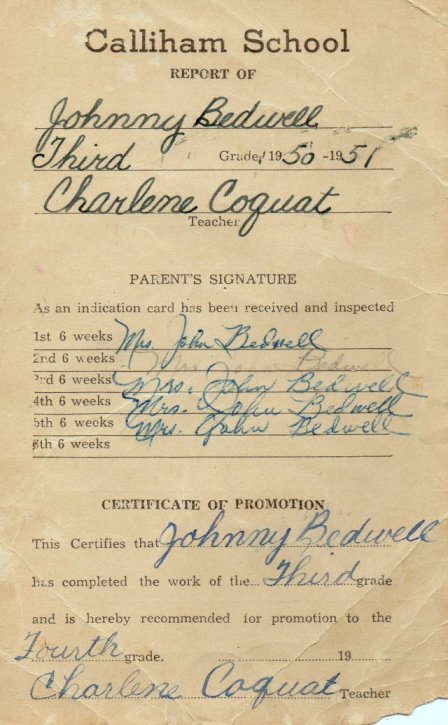 Calliham School
REPORT OF
Johnny Bedwell
Third Grade, 1950-1951
Charlene Coquat
Teacher
PARENT'S SIGNATURE
As an indication card has been received and inspected
1st 6 weeks Mrs. John Bedwell
2nd 6 weeks Mrs. John Bedwell
3rd 6 weeks Mrs. John Bedwell
4th 6 weeks Mrs. John Bedwell
5th 6 weeks Mrs. John Bedwell
6th 6 weeks
CERTIFICATE OF PROMOTION
This Certifies that Johnny Bedwell
has completed the work of the Third grade
and is hereby recommended for promotion to the
Fourth grade. 19
Charlene Coquat Teacher